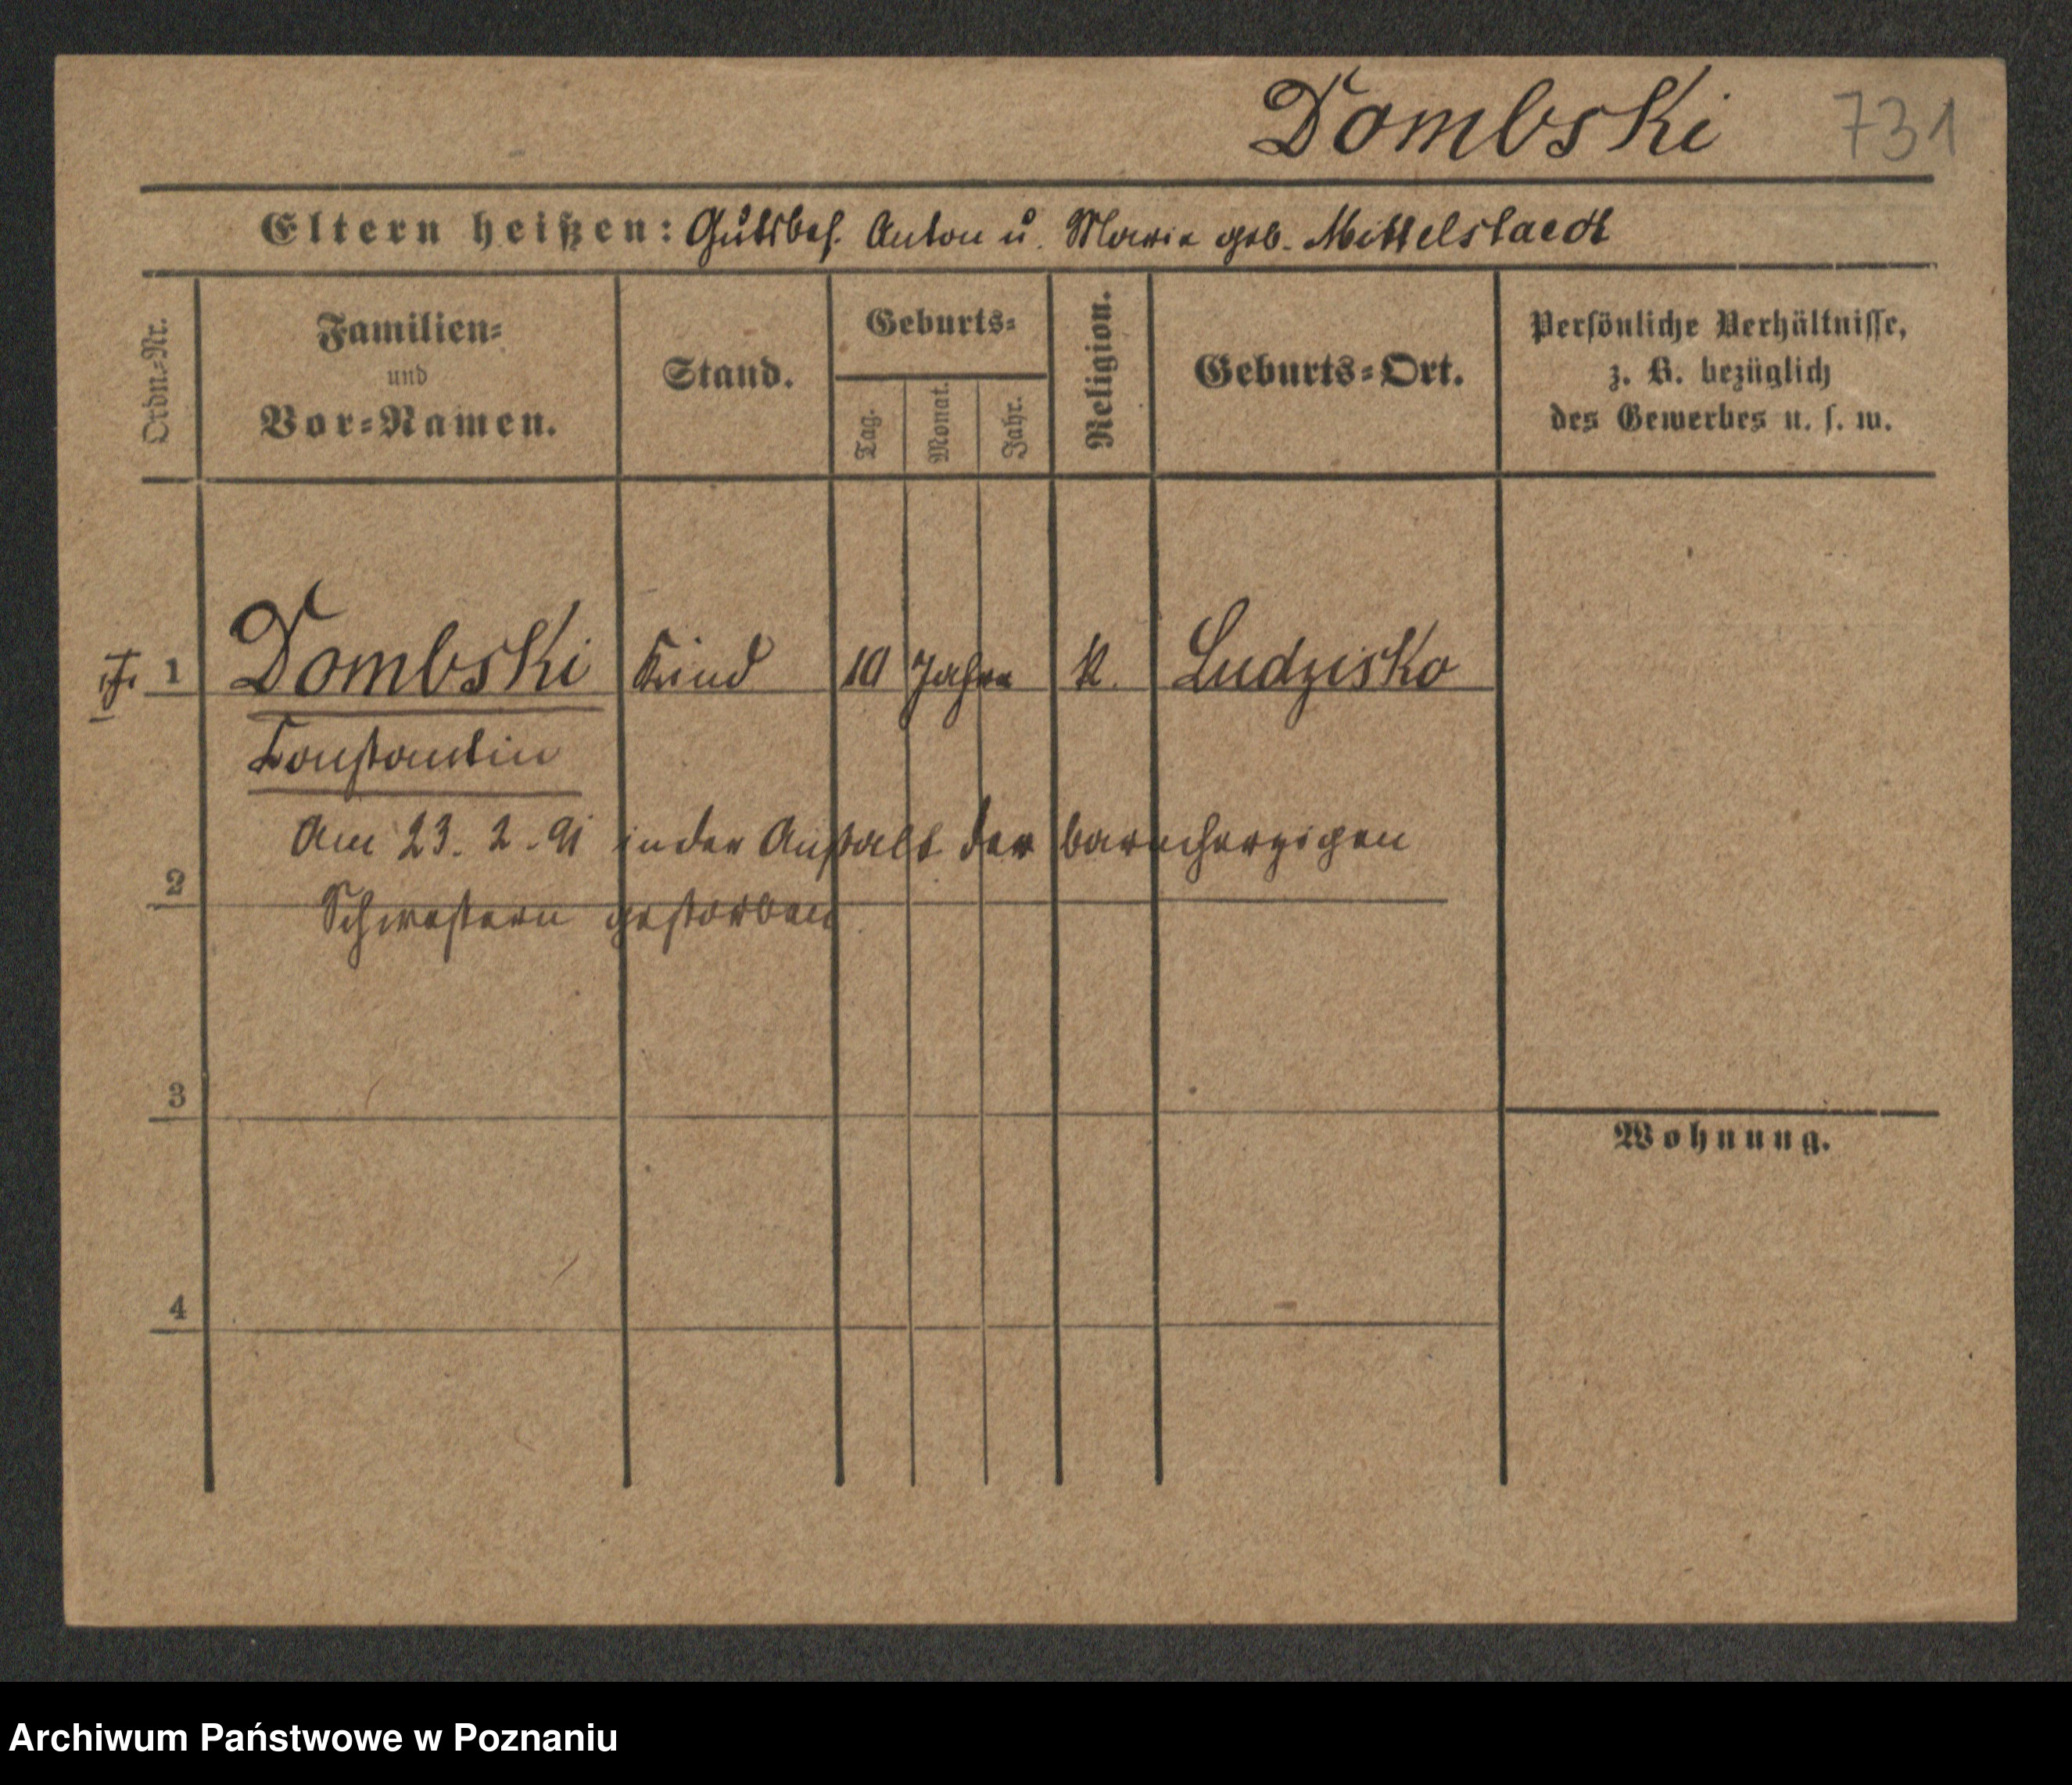 Dombski 731
Eltern heißen: Gutsbes. Anton u. Marie geb. Mittelstaedt
Ordn.=Nr.
Familien=
und
Vor=Namen.
Stand.
Geburts=
Tag.
Monat.
Jahr.
Religion.
Geburts=Ort.
Persönliche Verhältnisse,
z. B. bezüglich
des Gewerbes u. s. w.
1 Dombski Kind 10 Jahre K. Ludzisko
Constantin
Am 23. 2. 91 in der Anstalt der barmherzigen
2
Schwestern gestorben
3
Wohnung.
4
Archiwum Państwowe w Poznaniu